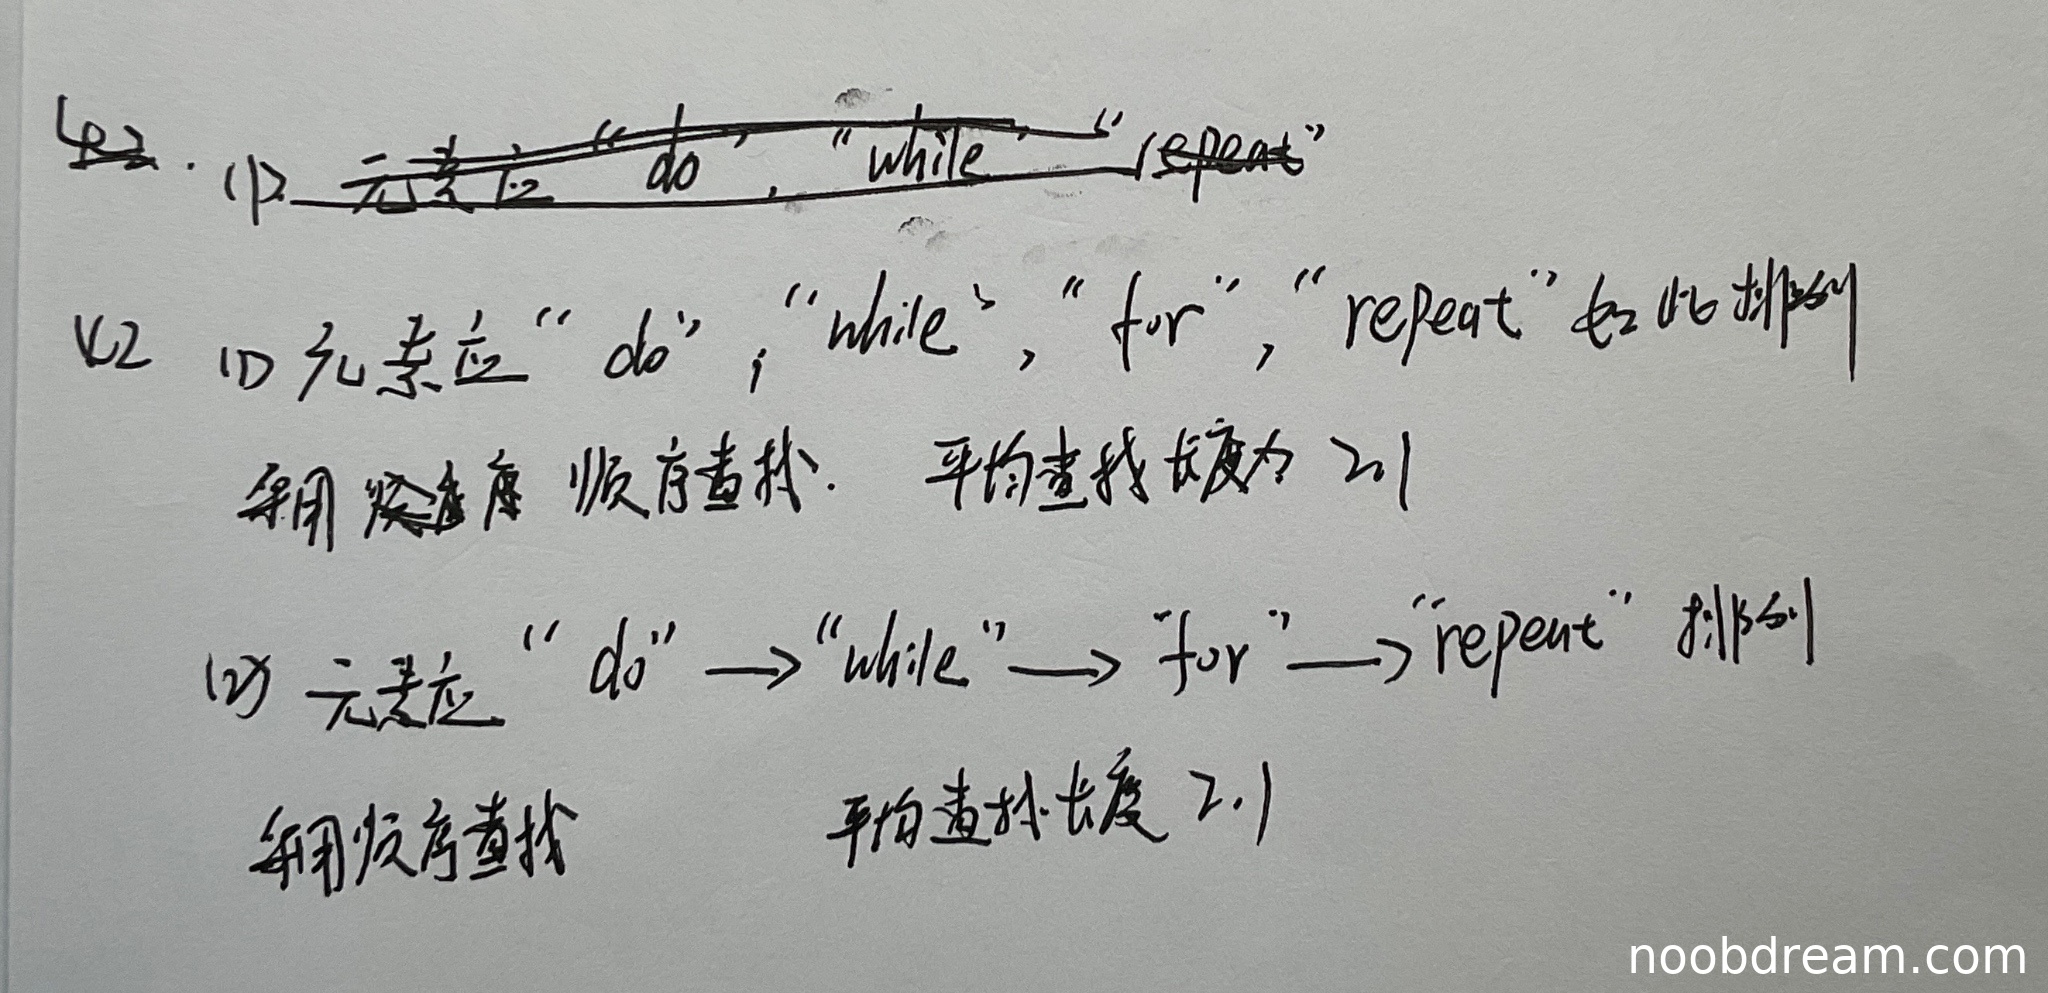 (1) 元素应 "do", "while" "repeat"
42 (1) 元素应 "do", "while", "for", "repeat" 如此排列
采用 顺序查找. 平均查找长度为 2.1
(2) 元素应 "do" → "while" → "for" → "repeat" 排列
采用顺序查找 平均查找长度 2.1
noobdream.com